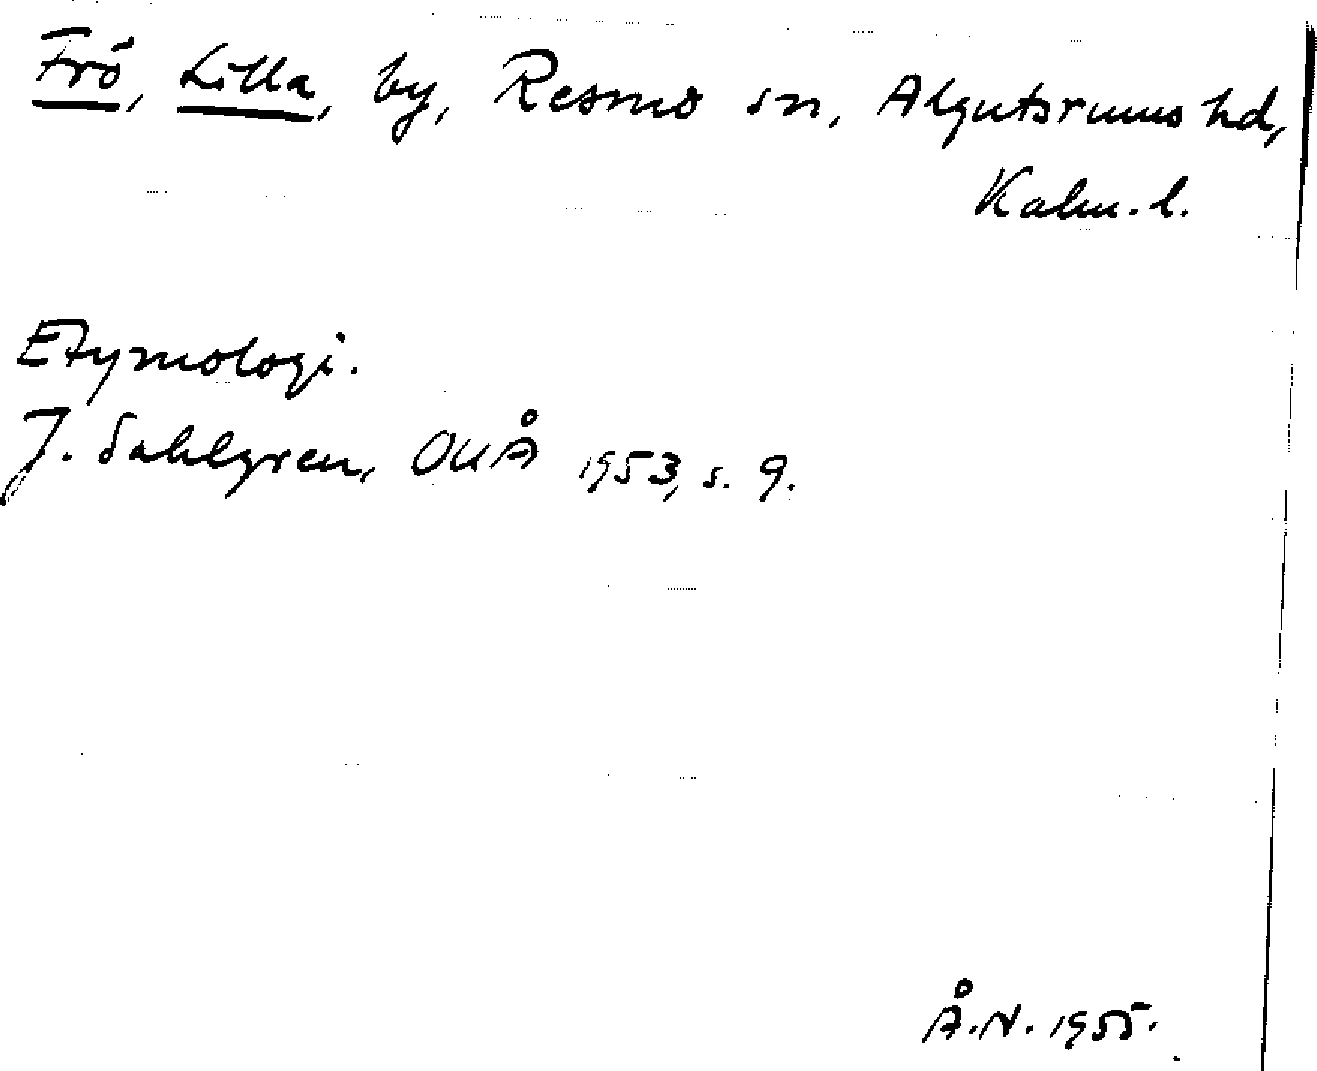 Frö, Lilla, by, Resmo sn, Algutsrums hd,
Kalm. l.
Etymologi.
J. Sahlgren, OUÅ 1953, s. 9.
Å.N. 1955.